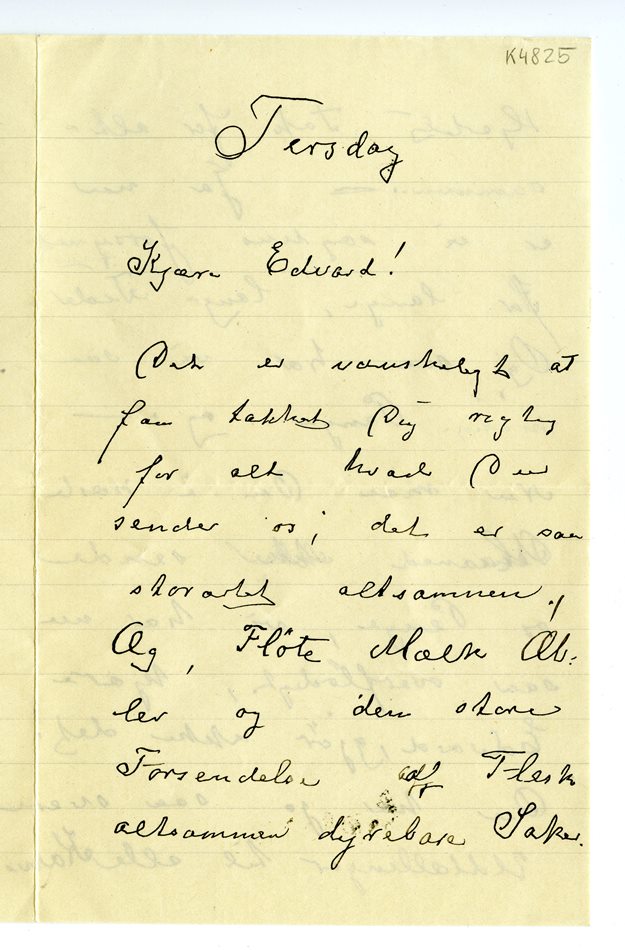 K4825
Tersdag
Kjære Edvard!
Det er vanskeligt at
faa takket Dig rigtig
for alt hvad Du
sender os; det er saa
storartet altsammen,
Æg, Fløte Mælk Æb-
ler og den store
Forsendelse aff Flesk
altsammen dyrebare Saker.